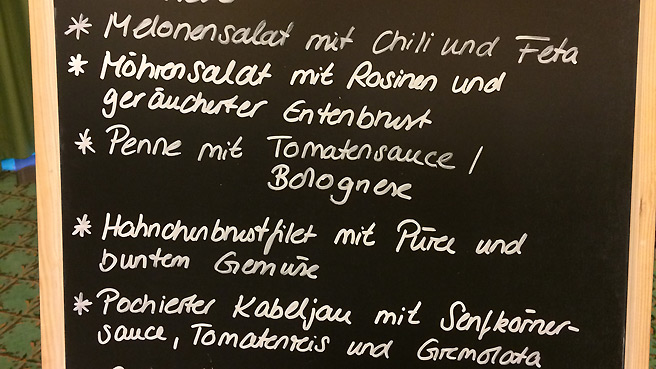 * Melonensalat mit Chili und Feta
* Möhrensalat mit Rosinen und
geräucherter Entenbrust
* Penne mit Tomatensauce /
Bolognese
* Hähnchenbrustfilet mit Püree und
buntem Gemüse
* Pochierter Kabeljau mit Senfkörner-
sauce, Tomatenreis und Gremolata